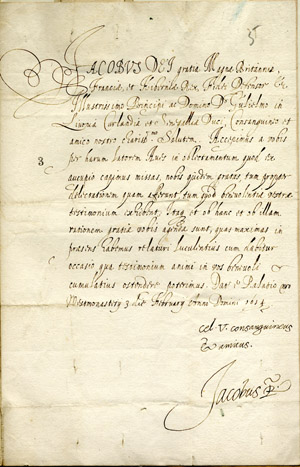 JACOBUS DEI gratia Magnæ Britanniæ
Franciæ, et Hiberniæ Rex, Fidei Defensor &c.
Illustrissimo Principi ac Domino Dno Gulielmo in
Livonia Curlandiæ et Semgalliæ Duci, Consanguineo et
amico nostro charissmo Salutem. Accepimus a vobis
per harum latorem Aves in oblectamentum quod ex
aucupio capimus missas, nobis quidem gratas tum propter
delectationem quam afferunt, tum quod benevolentiæ vestræ
testimonium exhibent, Itaq et ob hanc et ob illam
rationem gratiæ vobis agendæ sunt, quas maximas in
præsens habemus relaturi luculentius cum dabitur
occasio qua testimonium animi in vos benevoli
cumulatius ostendere poterimus. Dat e Palatio
Westmonastery 3 die February Anno Domini 1614
Cel. V. consanguineus
& amicus.
Jacobus R